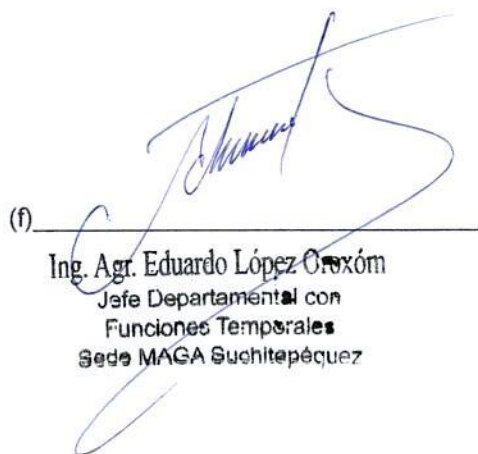 (f)
Ing. Agr. Eduardo López Oroxóm
Jefe Departamental con
Funciones Temporales
Sede MAGA Suchitepéquez